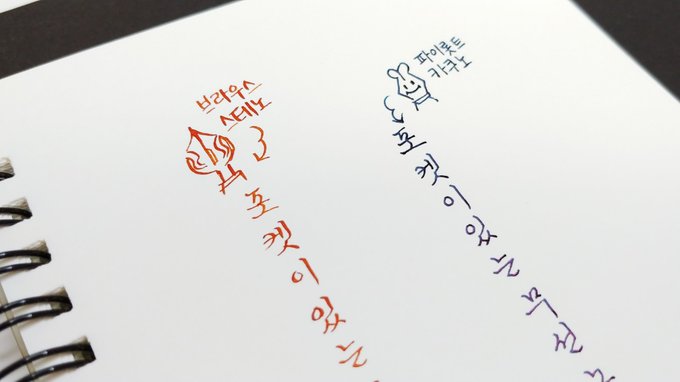 브라우스
스테노
포켓이있는
파이롯트
카쿠노
포켓이있는무선